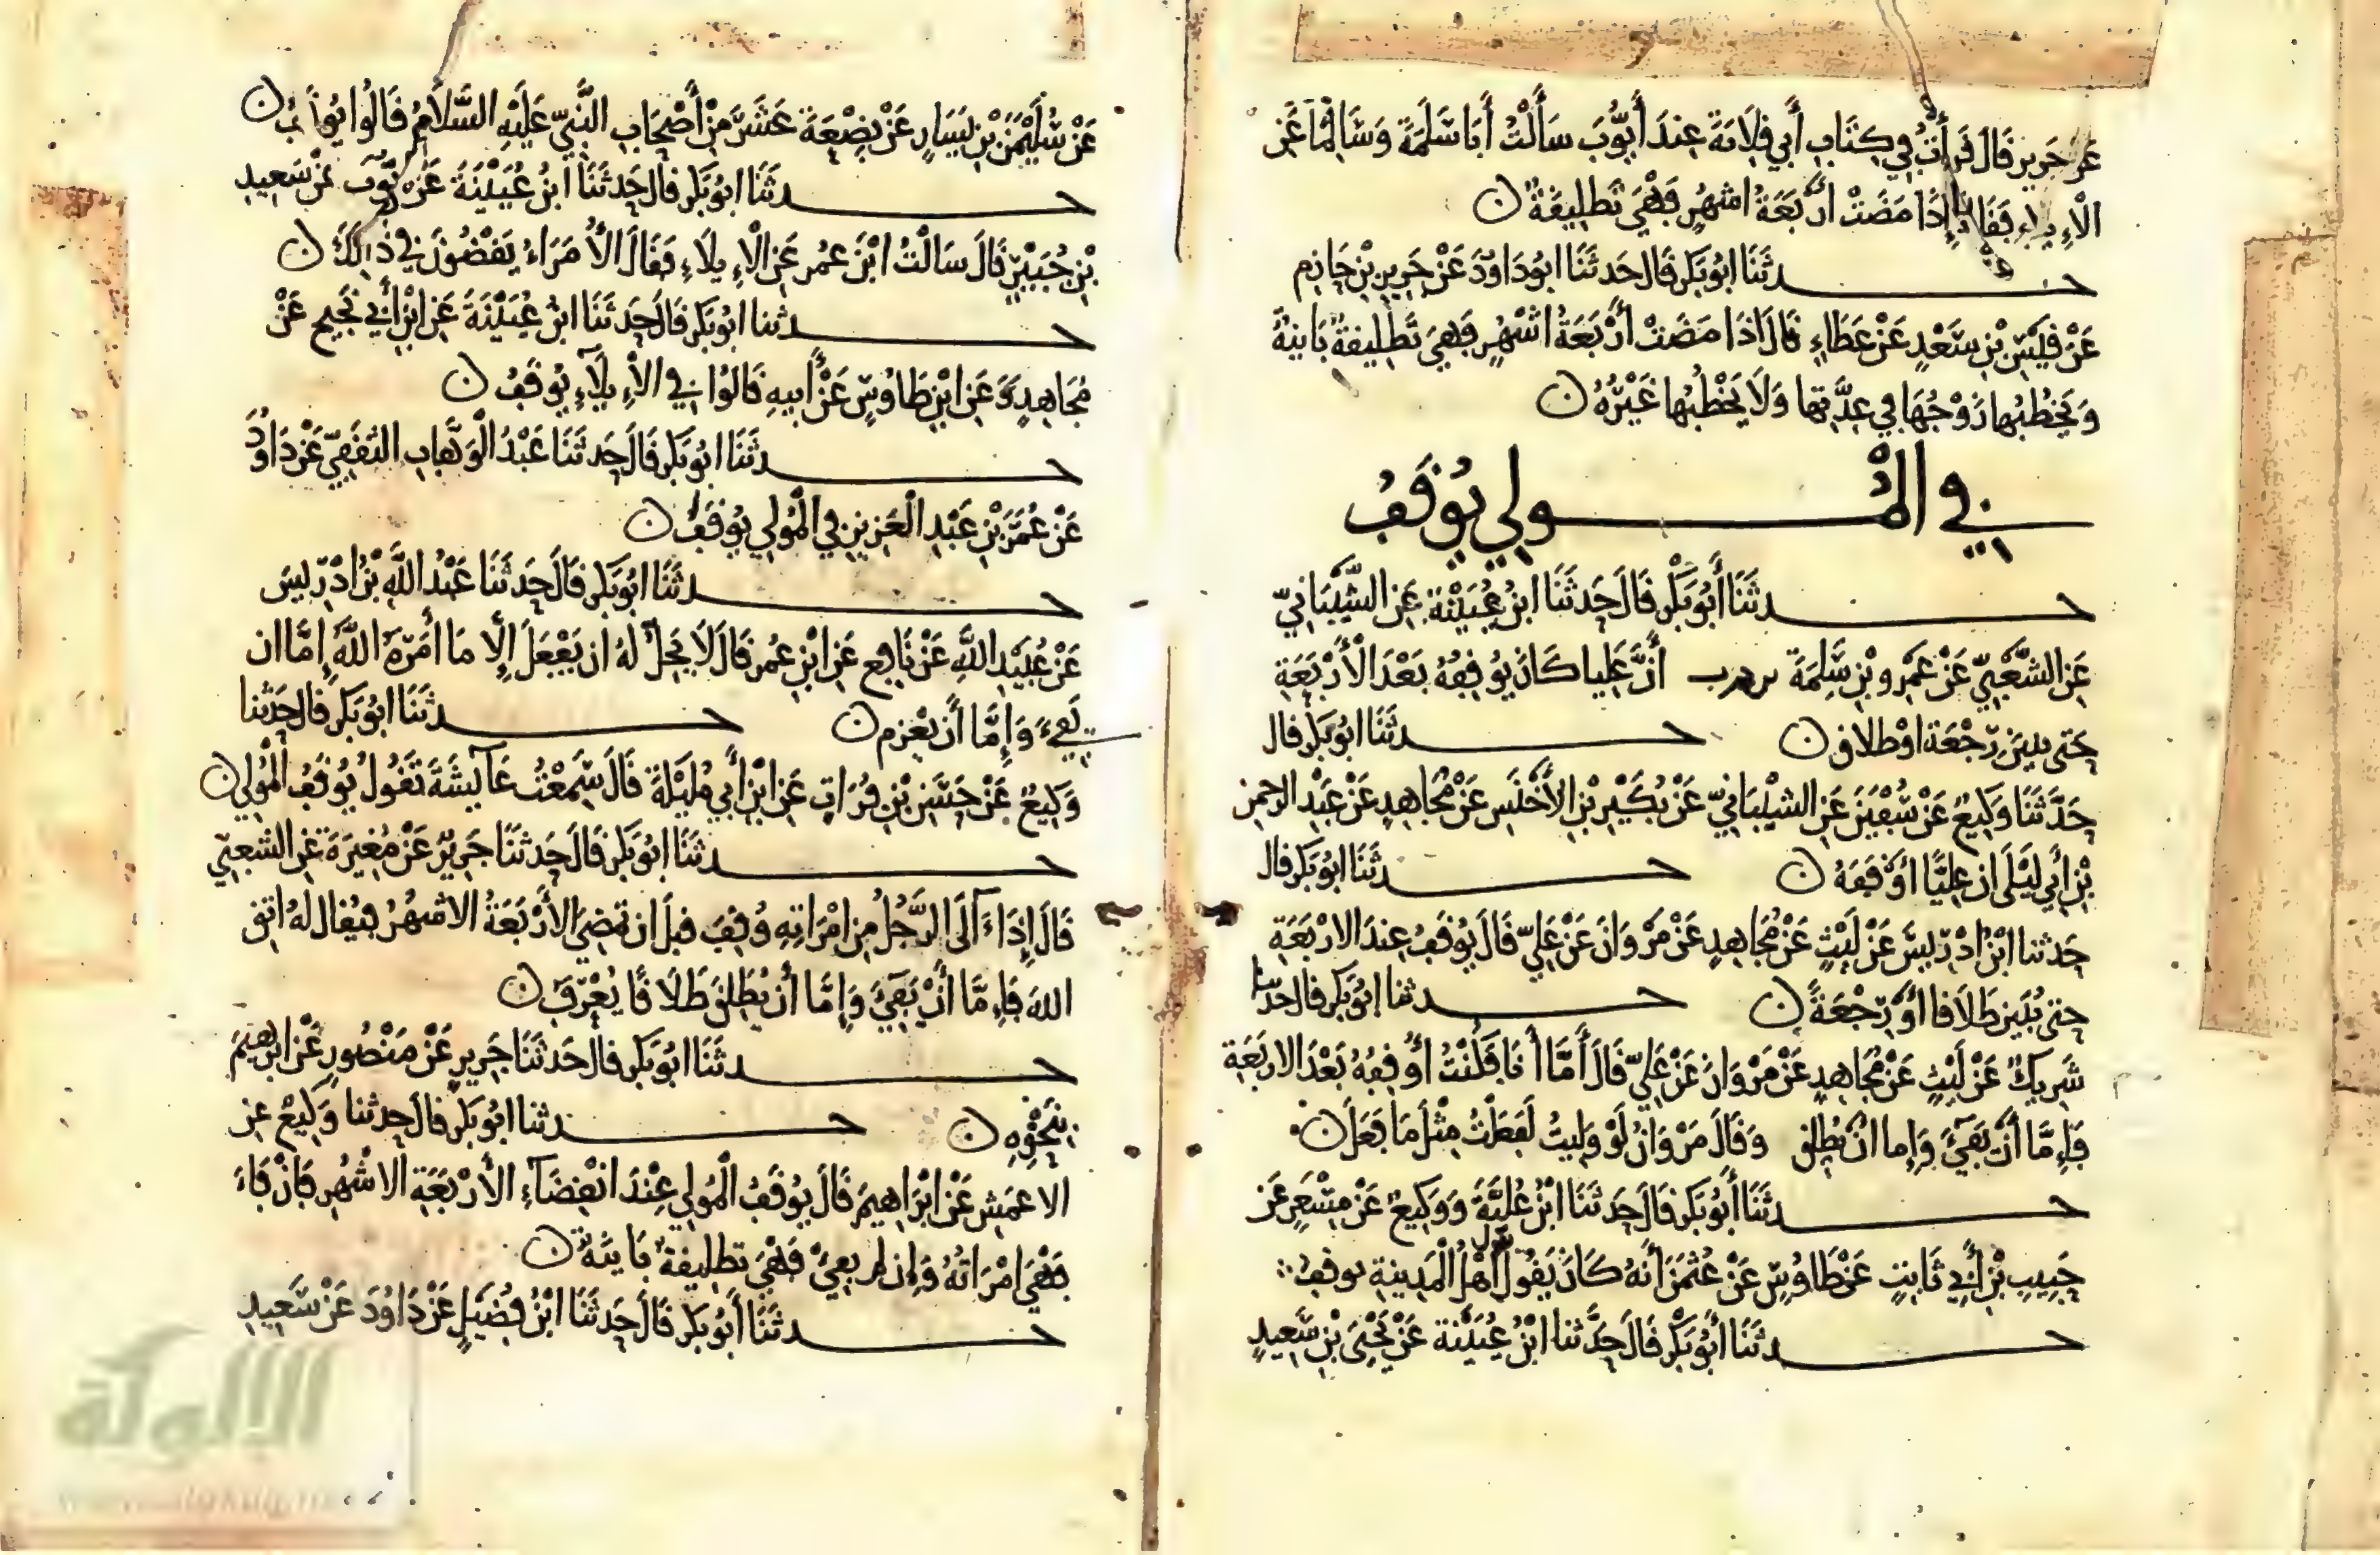 عَن جَرِير قَالَ قَرَأْتُ فِي كِتَابِ أَبِي قِلَابَةَ عِندَ أَيُّوبَ سَأَلْتُ أَبَا سَلَمَةَ وَسَالِمًا عَن
الْإِيلَاءِ فَقَالَا إِذَا مَضَتْ أَرْبَعَةُ اشْهُرٍ فَهْيَ تَطْلِيقَةٌ ن
حدثَنَا ابُو بَكر قَالَ حَدثَنَا ابُو دَاوُدَ عَنْ جَرِيرِ بْنِ حَازِم
عَنْ قَيْسِ بْنِ سَعْدٍ عَنْ عَطَاءٍ قَالَ اذَا مَضَتْ أَرْبَعَةُ اشْهُرٍ فَهِيَ تَطْلِيقَةٌ بَايِنَةٌ
وَيَخْطُبُهَا زَوْجُهَا فِي عِدَّتِهَا وَلَا يَخْطُبُهَا غَيْرُهُ ن
فِي الْمُولِي يُوقَفُ
حدثَنَا أَبُو بَكْر قَالَ حَدثَنَا ابْنُ عُيَيْنَةَ عَنِ الشَّيْبَانِيِّ
عَنِ الشَّعْبِيِّ عَنْ عَمْرِو بْنِ سَلِمَةَ أَنَّ عَلِيا كَانَ يُوقِفُهُ بَعْدَ الْأَرْبَعَةِ
حَتى يبين رَجْعَة اوْ طلاق ن حدثَنَا ابُو بَكر قال
حَدَّثَنَا وَكِيعٌ عَنْ سُفْيَنَ عَنِ الشَيْبَانِيِّ عَنْ بُكَيْرِ بْنِ الأَخْنَسِ عَنْ مُجَاهِدٍ عَنْ عَبْدِ الرحمن
بْنِ أَبِي لَيْلَى ان عَلِيًّا أَوْقَفَهُ ن حدثَنَا ابُو بَكر قال
حَدثنا ابْنُ ادْرِيسَ عَنْ لَيْثٍ عَنْ مُجَاهِدٍ عَنْ مَرْوَانَ عَنْ عَلِيّ قَالَ يُوقَفُ عِندَ الارْبَعَةِ
حتى يُبَيِّنَ طَلَاقا أَوْ رَجْعَةً ن حدثنا ابُو بَكر قال حدثنا
شَرِيكٌ عَنْ لَيْثٍ عَنْ مُجَاهِدٍ عَنْ مَرْوَانَ عَنْ عَلِيّ قَالَ أَمَّا أَنَا فَكُنْتُ أُوقِفُهُ بَعْدَ الاربَعَةِ
فَإِمَّا أَنْ يَفِيَ وَإِما انْ يُطَلِّق وَقَالَ مَرْوَانُ لَوْ وَلِيتُ لَفَعَلْتُ مِثْلَ مَا فَعَلَ ن
حدثَنَا أَبُو بَكر قَالَ حَدثَنَا ابْنُ عُلَيَّةَ وَوَكِيعٌ عَنْ مِسْعَرٍ عَن
حَبِيبِ بْنِ أَبِي ثَابِتٍ عَنْ طَاوُسٍ عَنْ عُثْمَنَ أَنَّهُ كَانَ يَقُولُ بقول أَهْلِ الْمَدِينَةِ يوقف
حدثَنَا أَبُو بَكْر قَالَ حَدَّثنا ابْنُ عُيَيْنَة عَنْ يَحْيَى بْنِ سَعِيدٍ
عَنْ سُلَيْمَنَ بْنِ يَسَارٍ عَنْ بِضْعَةَ عَشَرَ مِنْ أَصْحَابِ النَّبِيّ عَلَيْهِ السَّلَامُ قَالُوا يُوقَفُ ن
حدثَنَا ابُو بَكر قال حَدثَنَا ابْنُ عُيَيْنَةَ عَنْ أَيُّوبَ عَنْ سَعِيدِ
بْنِ جُبَيْرٍ قَالَ سَالْتُ ابْنَ عُمر عَنِ الْإِيلَاءِ فَقَالَ الأُمَرَاءُ يَقْضُونَ فِي ذَلِكَ ن
حدثنا ابُو بَكر قَالَ حَدثَنَا ابْنُ عُيَيْنَةَ عَنِ ابْنِ أَبِي نَجِيحٍ عَنْ
مُجَاهِدٍ وَعَنِ ابْنِ طَاوُسٍ عَنْ أَبِيهِ قَالُوا فِي الْإِيلَاءِ يُوقَفُ ن
حدثَنَا ابُو بَكر قَالَ حَدثَنَا عَبْدُ الْوَهَّابِ الثَّقَفِيّ عَنْ دَاوُدَ
عَنْ عُمَرَ بْنِ عَبْدِ الْعَزِيزِ فِي الْمُولِي يُوقَفُ ن
حدثَنَا ابُو بَكر قَالَ حَدثَنَا عَبْدُ اللَّهِ بْنُ ادْرِيسَ
عَنْ عُبَيْدِ اللَّهِ عَنْ نَافِع عَنِ ابْنِ عُمر قَالَ لَا يَحِلُّ لَهُ ان يَفْعَلَ إِلَّا مَا أَمَرَهُ اللَّهُ إِمَّا ان
يَفِيءَ وَإِمَّا أَنْ يَعْزِم ن حدثَنَا ابُو بَكر قَال حَدثنا
وَكِيعٌ عَنْ حَسَنِ بْنِ فُرَاتٍ عَنِ ابْنِ أَبِي مُلَيْكَةَ قَالَ سَمِعْتُ عَآيِشَةَ تَقُولُ يُوقَفُ الْمُولِي ن
حدثَنَا ابُو بَكر قَالَ حَدثَنَا جَرِيرٌ عَنْ مُغِيرَةَ عَنِ الشعبِيّ
قَالَ إِذَا ءَآلَى الرَّجُلُ مِنِ امْرَاتِهِ وُقِفَ قبلَ ان تمْضِيَ الأَرْبَعَةُ الاشهُرِ فيُقال لهُ اتق
اللهَ فَإِمَّا أَنْ يَفِيَ وَإِمَّا أَنْ يُطَلِّقَ طَلَاقًا يُعْرَفُ ن
حدثَنَا ابُو بَكر قال حَدثَنَا جَرِيرٍ عَنْ مَنْصُورٍ عَنْ ابْرهيمَ
بِنَحْوِهِ ن حدثنا ابُو بَكر قال حدثنا وَكِيعٌ عن
الاعْمَشِ عَنْ ابْرَاهِيمَ قَالَ يُوقَفُ الْمُولِي عِنْدَ انْقِضَآءِ الْأَرْبَعَةِ الاشْهُرِ فَإِنْ فَاءَ
فَهْيَ امْرَاتُهُ وَإِن لم يفِئْ فَهْيَ تطْلِيقَةٌ بَايِنَةٌ ن
حدثَنَا أَبُو بَكر قَالَ حَدثَنَا ابْنُ فُضَيْلٍ عَنْ دَاوُدَ عَنْ سَعِيدِ
الألوكة